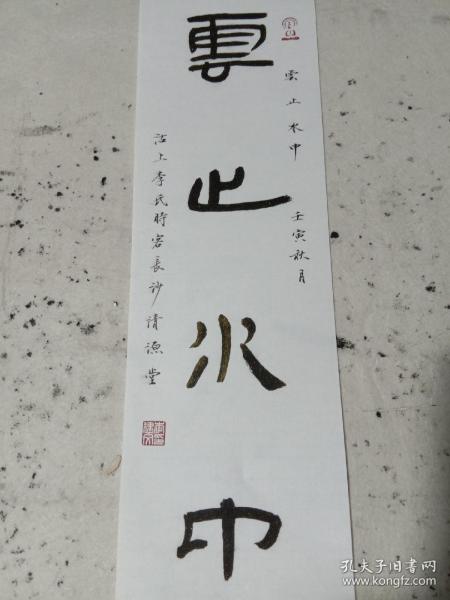 雲止水中
雲止水中
壬寅秋月
沽上李民時客長沙清源堂
孔夫子旧书网
www.kongfz.com